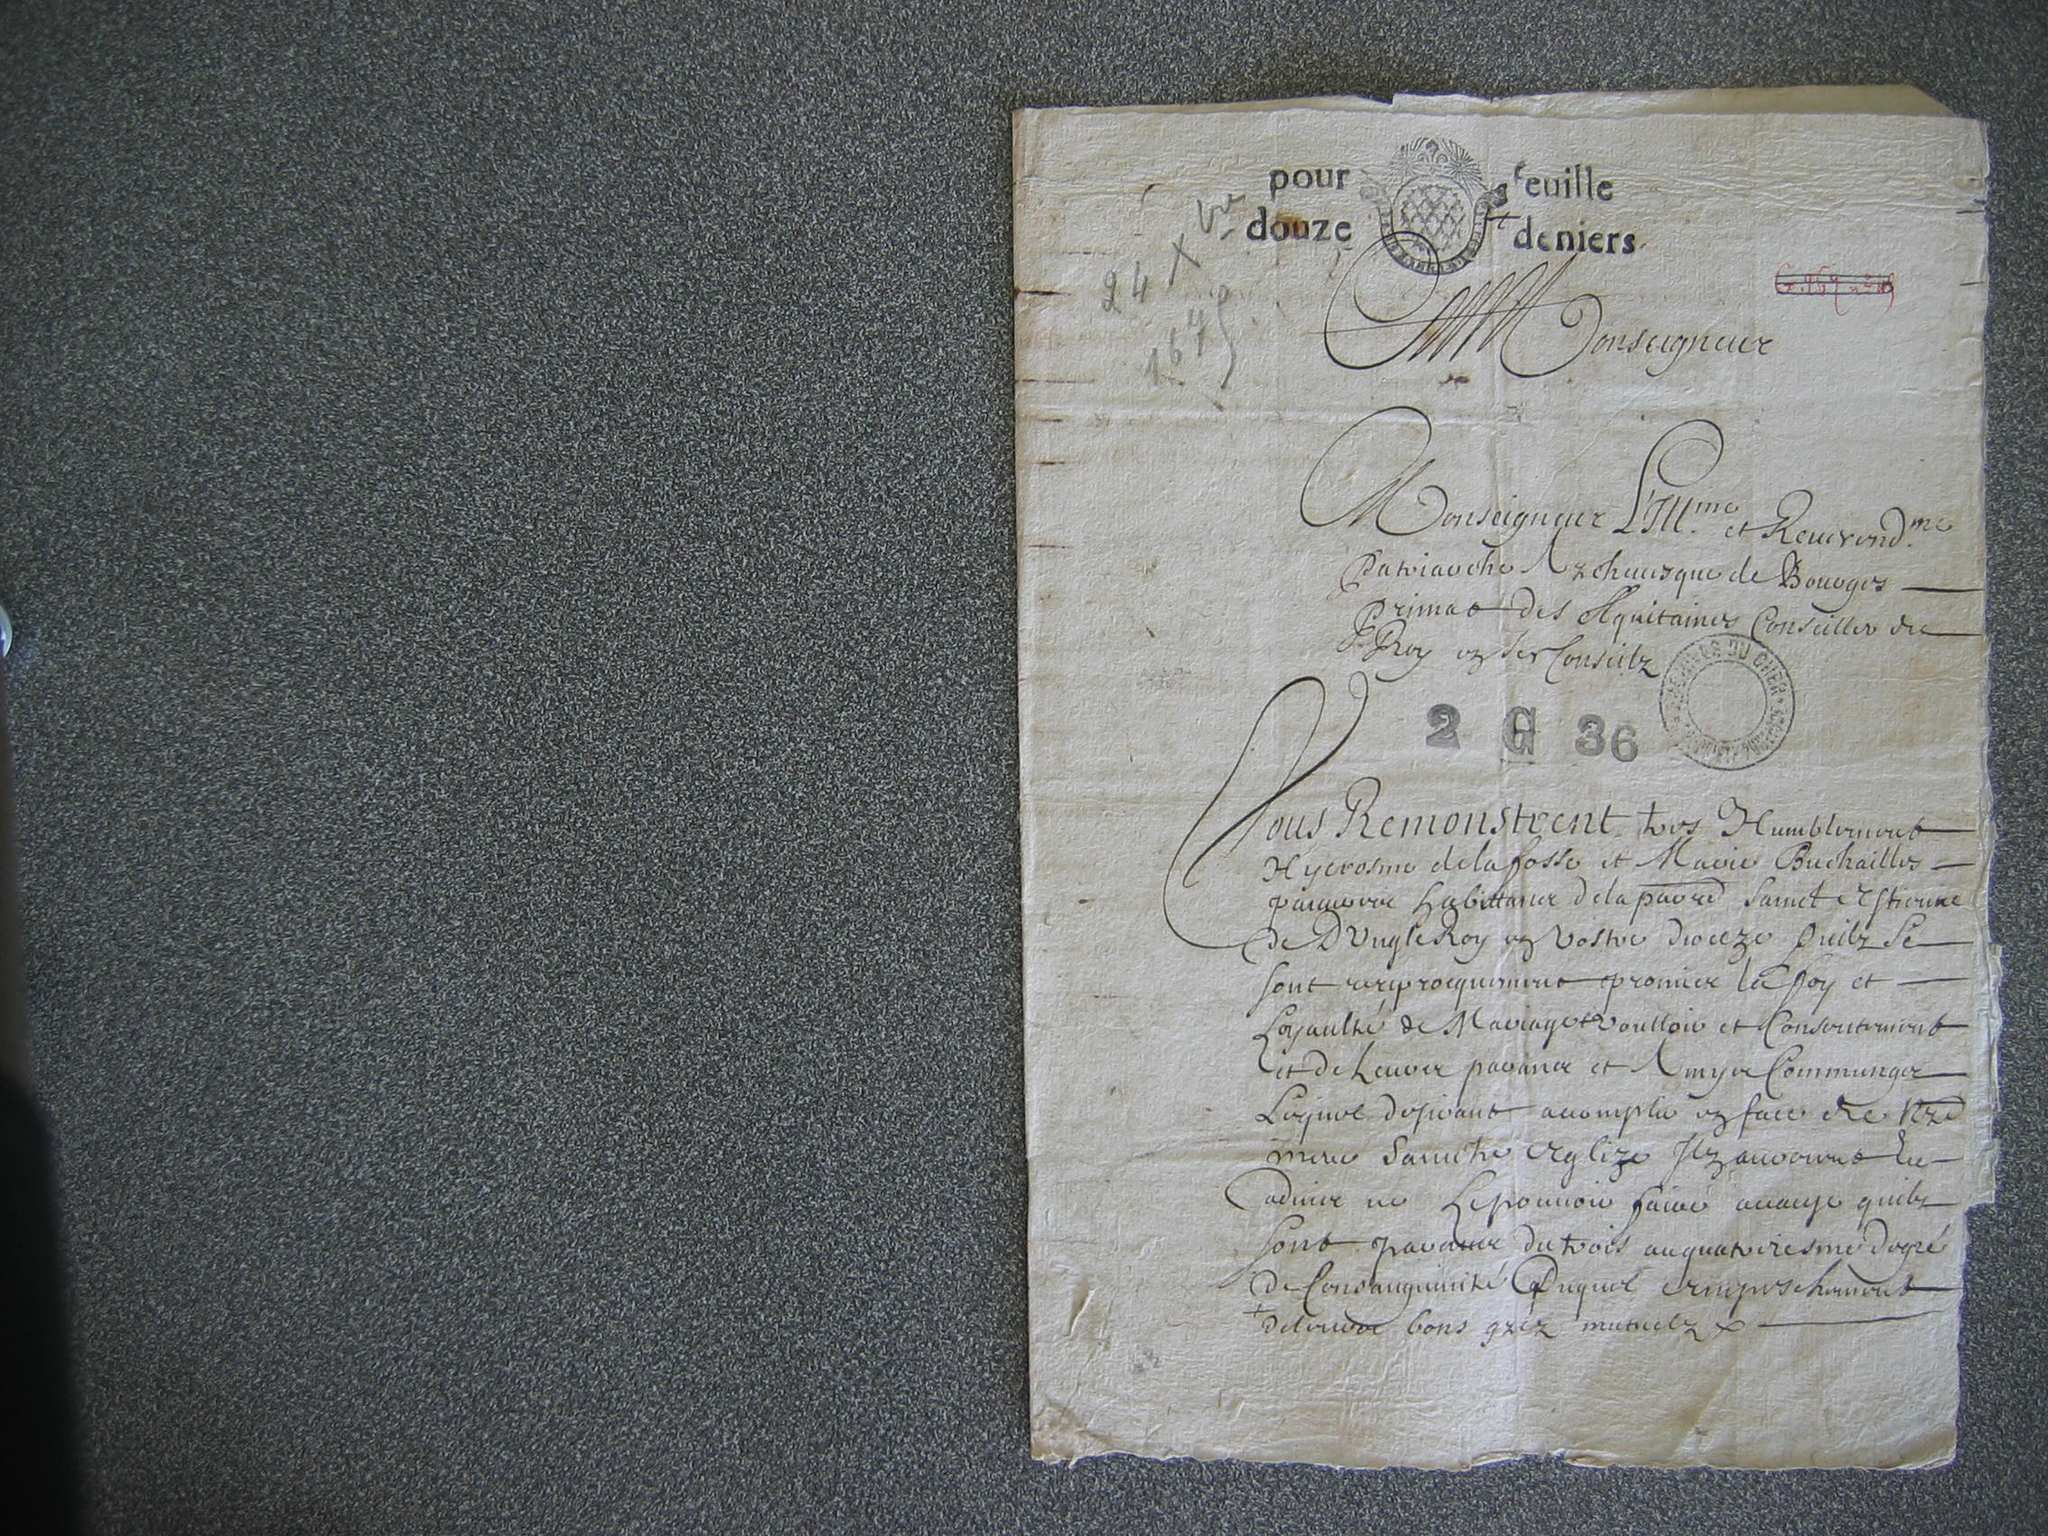 pour feuille
douze deniers
24 Xbre
1674
Monseigneur
Monseigneur L'Illme et Reverendme
Patriarche Archevesque de Bourges
Primat des Aquitaines Conseiller du
Roy en ses Conseilz
ARCHIVES DU CHER
2 G 36
Vous Remonstrent tres Humblement
Hyerosme delafosse et Marie Buchailles
habittans de la parred Sainct Estienne
de Dun le Roy en Vostre dioceze quilz se
sont reciprocquement promis la foy et
Loyaulté de Mariage voulloir et Consentement
et de Leurs parans et Amys Communs
Lequel desirant accomplir en face de nred
mere Saincte Eglize Ilz
ne Le pouvoir faire acause quilz
sont parans du trois au quatriesme degré
de Consanguinité Duquel empeschement
bons grez mutuelz